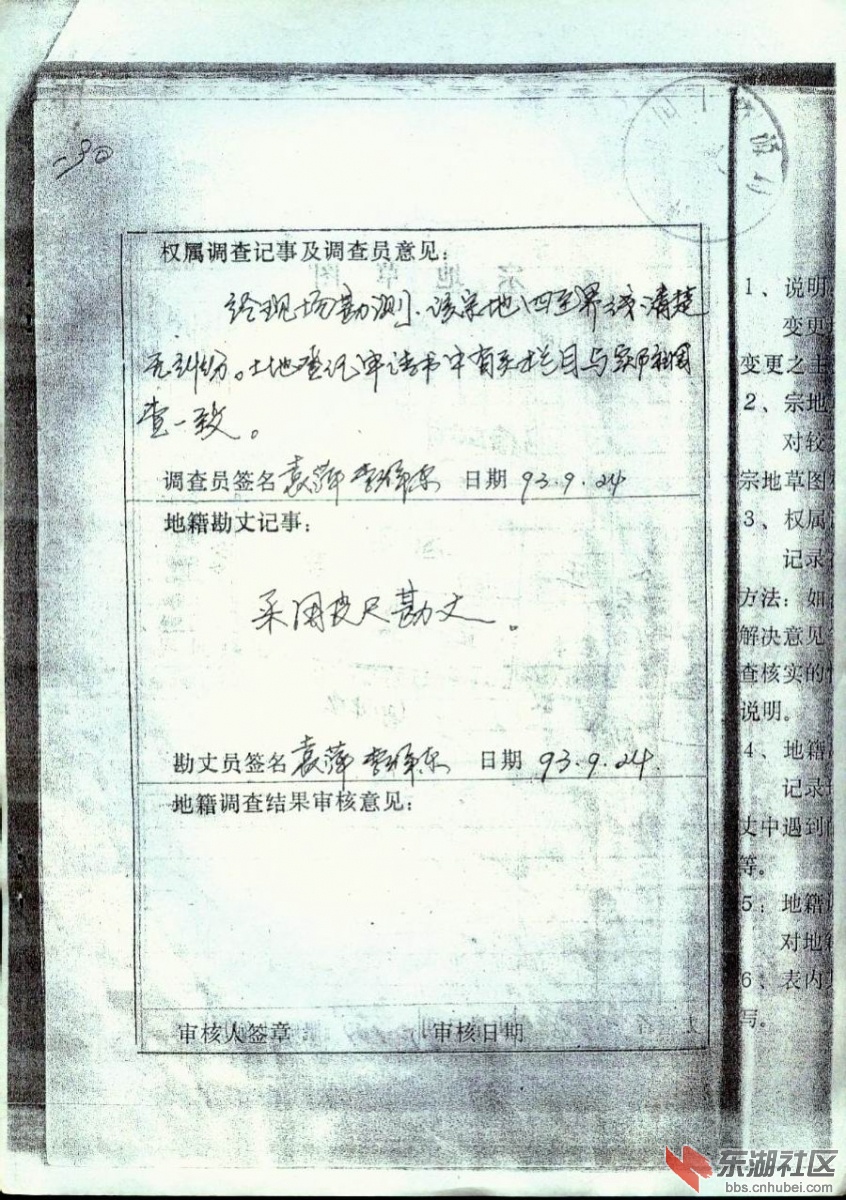 -90
权属调查记事及调查员意见:
经现场勘测.该宗地四至界线清楚
无纠纷。土地登记申请书中有关栏目与实际调
查一致。
调查员签名 袁萍 日期 93.9.24
地籍勘丈记事:
采用皮尺勘丈。
勘丈员签名 袁萍 日期 93.9.24.
地籍调查结果审核意见:
审核人签章 审核日期
1、说明
变更
变更之主
2、宗地
对较
宗地草图
3、权属
记录
方法:如
解决意见
查核实的
说明。
4、地籍
记录
丈中遇到
等。
5:地籍
对地
6、表内
写。
东湖社区
bbs.cnhubei.com